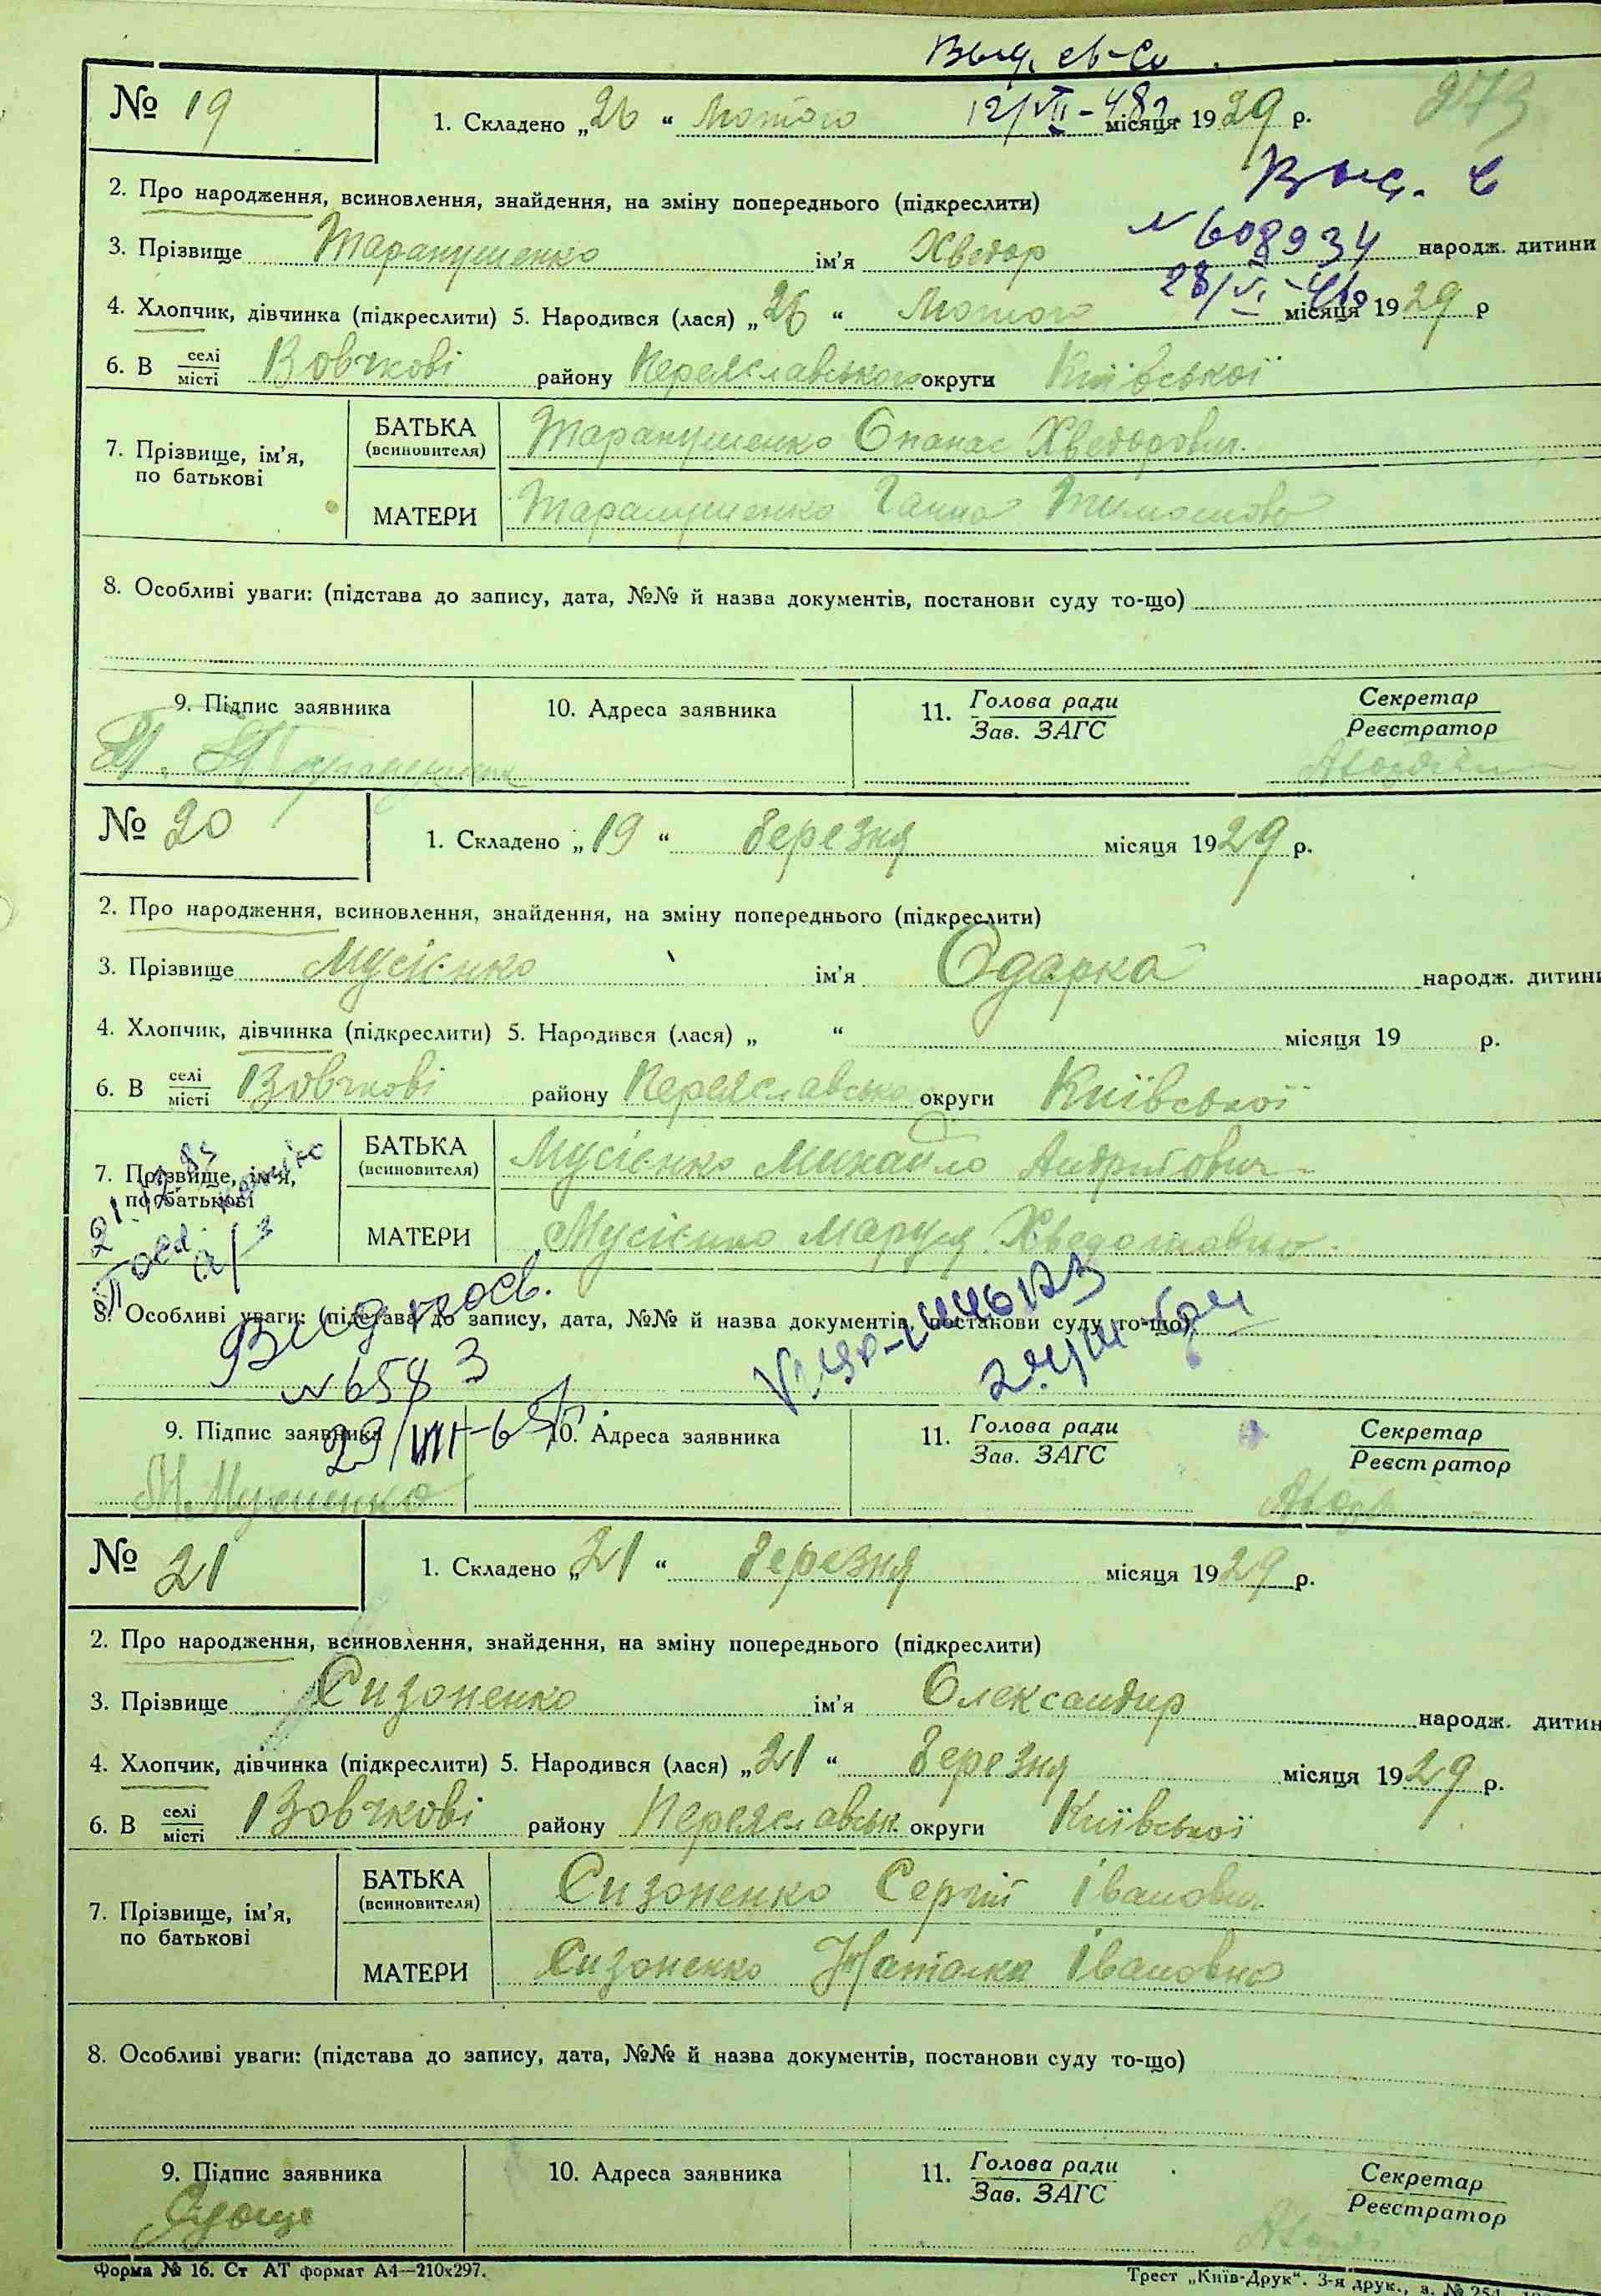 Выд. св-во
273
№ 19
1. Складено „26“ Лютого місяця 1929 р.
12/VII-48г.
Выд. с
2. Про народження, всиновлення, знайдення, на зміну попереднього (підкреслити)
N 608934
3. Прізвище Тарапушенко ім'я Хведор народж. дитини
28/VI-46
4. Хлопчик, дівчинка (підкреслити) 5. Народився (лася) „26“ Лютого місяця 1929 р
6. В селі/місті Вовчкові району Переяславського округи Київської
7. Прізвище, ім'я, по батькові
БАТЬКА (всиновителя) Тарапушенко Опанас Хведорович
МАТЕРИ Тарапушенко Ганна Тимошовна
8. Особливі уваги: (підстава до запису, дата, №№ й назва документів, постанови суду то-що)
9. Підпис заявника
10. Адреса заявника
11. Голова ради
Зав. ЗАГС
Секретар
Реєстратор
№ 20
1. Складено „19“ березня місяця 1929 р.
2. Про народження, всиновлення, знайдення, на зміну попереднього (підкреслити)
3. Прізвище Мусієнко ім'я Одарка народж. дитини
4. Хлопчик, дівчинка (підкреслити) 5. Народився (лася) „ “ місяця 19 р.
6. В селі/місті Вовчкові району Переяславсько округи Київської
7. Прізвище, ім'я, по батькові
БАТЬКА (всиновителя) Мусієнко Михайло Андрійович
МАТЕРИ Мусієнко Маруся Хведотовна
8. Особливі уваги: (підстава до запису, дата, №№ й назва документів, постанови суду то-що)
N 6583
9. Підпис заявника
10. Адреса заявника
11. Голова ради
Зав. ЗАГС
Секретар
Реєстратор
М. Мусиенко
№ 21
1. Складено „21“ березня місяця 1929 р.
2. Про народження, всиновлення, знайдення, на зміну попереднього (підкреслити)
3. Прізвище Сизоненко ім'я Олександир народж. дитин
4. Хлопчик, дівчинка (підкреслити) 5. Народився (лася) „21“ березня місяця 1929 р.
6. В селі/місті Вовчкові району Переяславськ. округи Київської
7. Прізвище, ім'я, по батькові
БАТЬКА (всиновителя) Сизоненко Сергій Іванович
МАТЕРИ Сизоненко Наталка Івановна
8. Особливі уваги: (підстава до запису, дата, №№ й назва документів, постанови суду то-що)
9. Підпис заявника
10. Адреса заявника
11. Голова ради
Зав. ЗАГС
Секретар
Реєстратор
Форма № 16. Ст АТ формат А4—210х297.
Трест „Київ-Друк“. 3-я друк., з. № 254